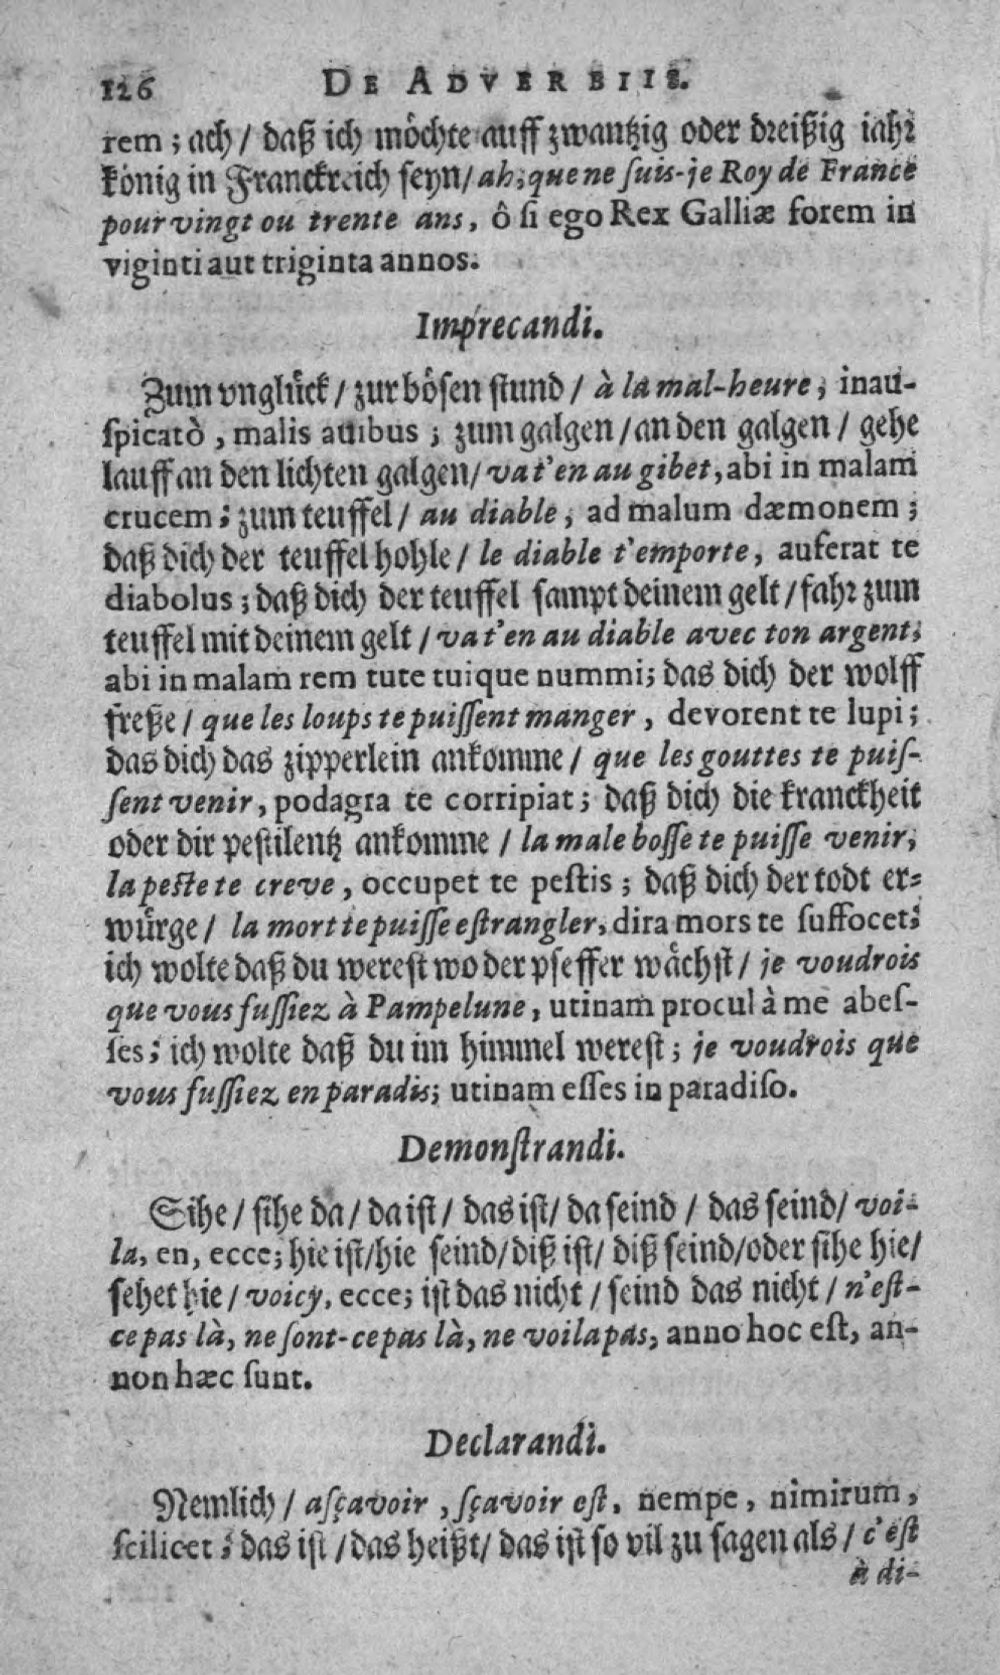 126 DE ADVERBIIS.
rem; ach / daß ich möchte auff zwantzig oder dreißig iahr
könig in Franckreich seyn / ah, que ne ſuis-je Roy de France
pour vingt ou trente ans, ô ſi ego Rex Galliæ forem in
viginti aut triginta annos.
Imprecandi.
Zum vnglück / zur bösen stund / à la mal-heure, inau-
ſpicatò, malis avibus; zum galgen / an den galgen / gehe
lauff an den lichten galgen / va t'en au gibet, abi in malam
crucem; zum teuffel / au diable, ad malum dæmonem;
daß dich der teuffel hohle / le diable t'emporte, auferat te
diabolus; daß dich der teuffel sampt deinem gelt / fahr zum
teuffel mit deinem gelt / va t'en au diable avec ton argent;
abi in malam rem tute tuique nummi; das dich der wolff
freße / que les loups te puiſſent manger, devorent te lupi;
das dich das zipperlein ankomme / que les gouttes te puiſ-
ſent venir, podagra te corripiat; daß dich die kranckheit
oder dir pestilentz ankomme / la male boſſe te puiſſe venir,
la peſte te creve, occupet te peſtis; daß dich der todt er-
würge / la mort te puiſſe eſtrangler, dira mors te ſuffocet;
ich wolte daß du werest wo der pfeffer wächst / je voudrois
que vous fuſſiez à Pampelune, utinam procul à me abeſ-
ſes; ich wolte daß du im himmel werest; je voudrois que
vous fuſſiez en paradis; utinam eſſes in paradiſo.
Demonſtrandi.
Sihe / sihe da / da ist / das ist / da seind / das seind / voi-
la, en, ecce; hie ist / hie seind / diß ist / diß seind / oder sihe hie /
sehet hie / voicy, ecce; ist das nicht / seind das nicht / n'eſt-
ce pas là, ne ſont-ce pas là, ne voila pas, anno hoc eſt, an-
non hæc ſunt.
Declarandi.
Nemlich / aſçavoir, ſçavoir eſt, nempe, nimirum,
ſcilicet; das ist / das heißt / das ist so vil zu sagen als / c'eſt
à di-